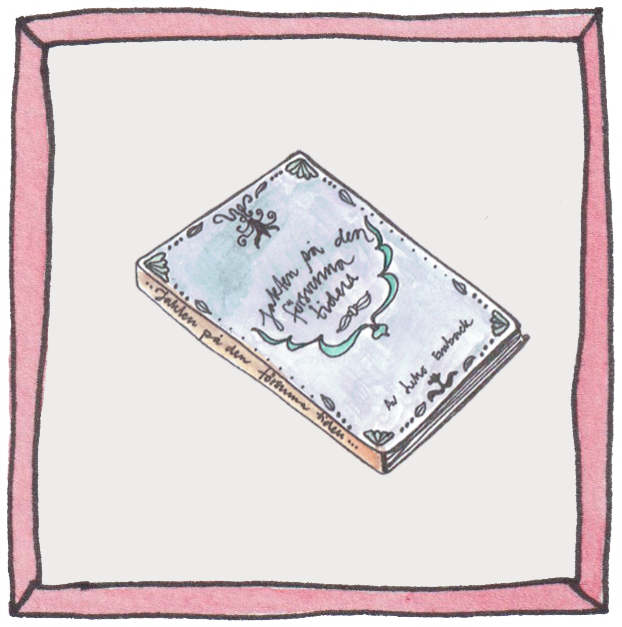 Jakten på den
försvunna
tiden
Av
Jakten på den försvunna tiden...